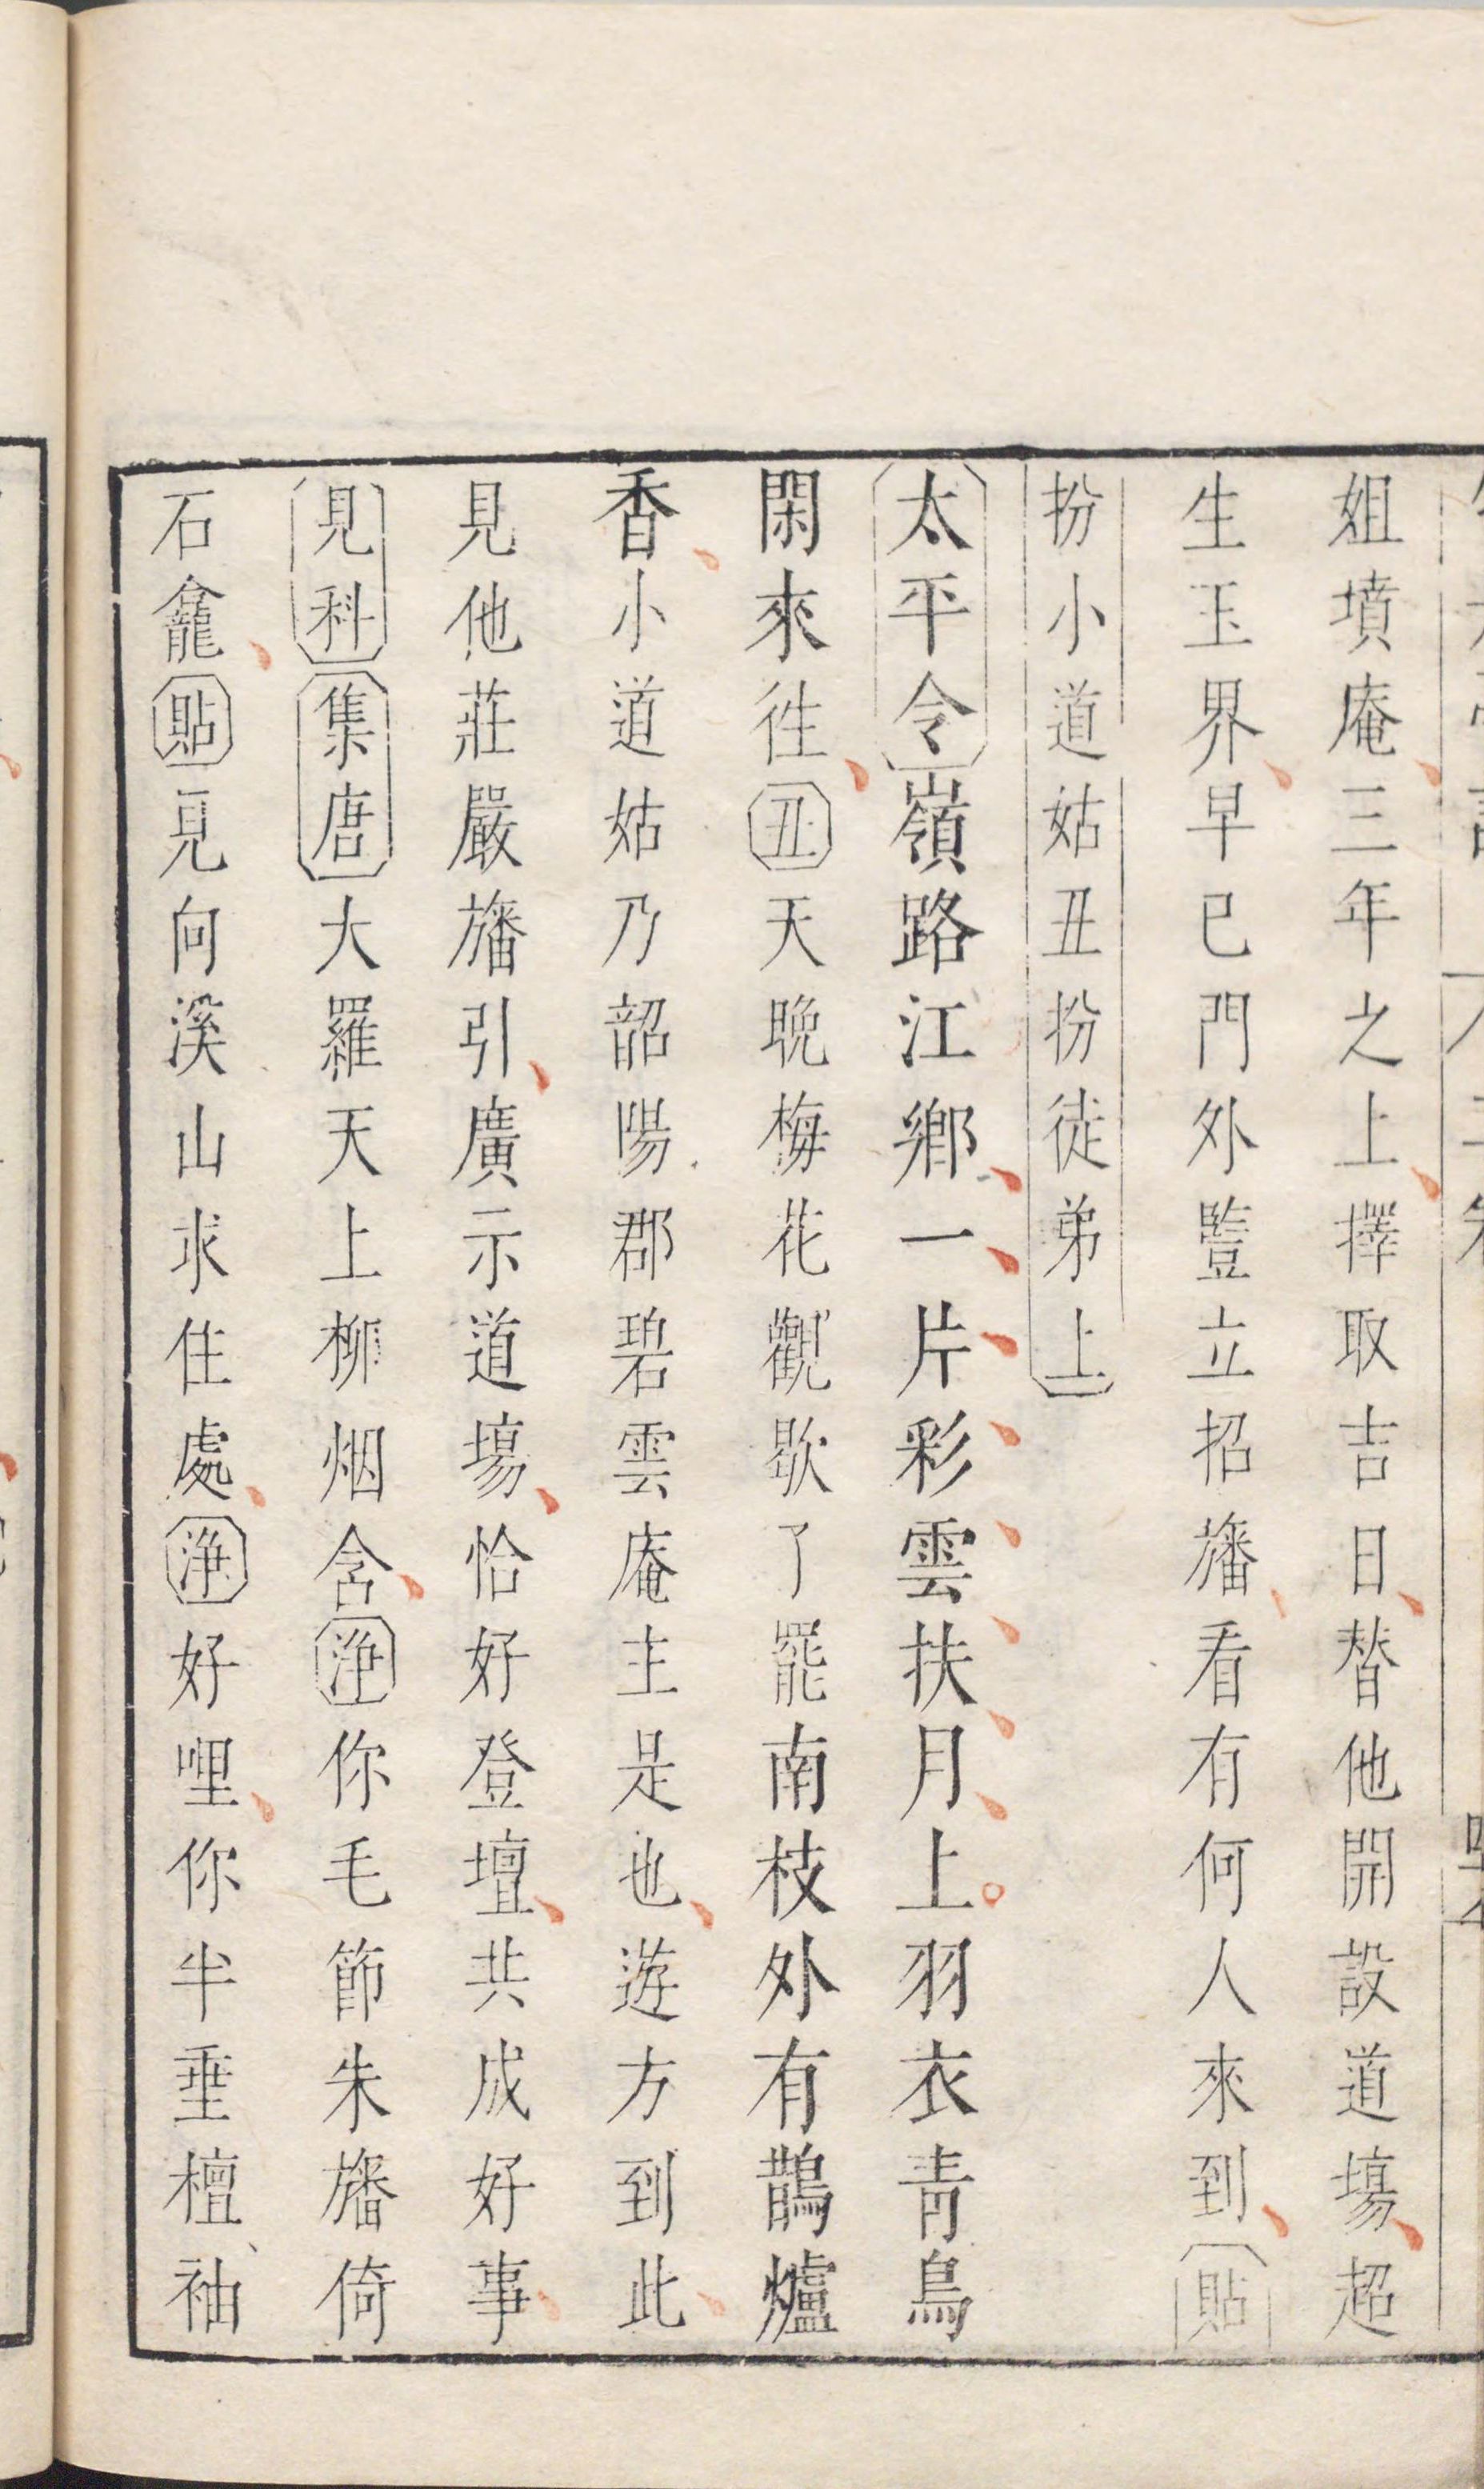 姐墳庵三年之上擇取吉日替他開設道場超
生玉界早已門外豎立招旛看有何人來到貼
扮小道姑丑扮徒弟上
太平令嶺路江鄉一片彩雲扶月上羽衣青鳥
閑來往丑天晚梅花觀歇了罷南枝外有鵲爐
香小道姑乃韶陽郡碧雲庵主是也遊方到此
見他莊嚴旛引廣示道場恰好登壇共成好事
見科集唐大羅天上柳烟含淨你毛節朱旛倚
石龕貼見向溪山求住處淨好哩你半垂檀袖